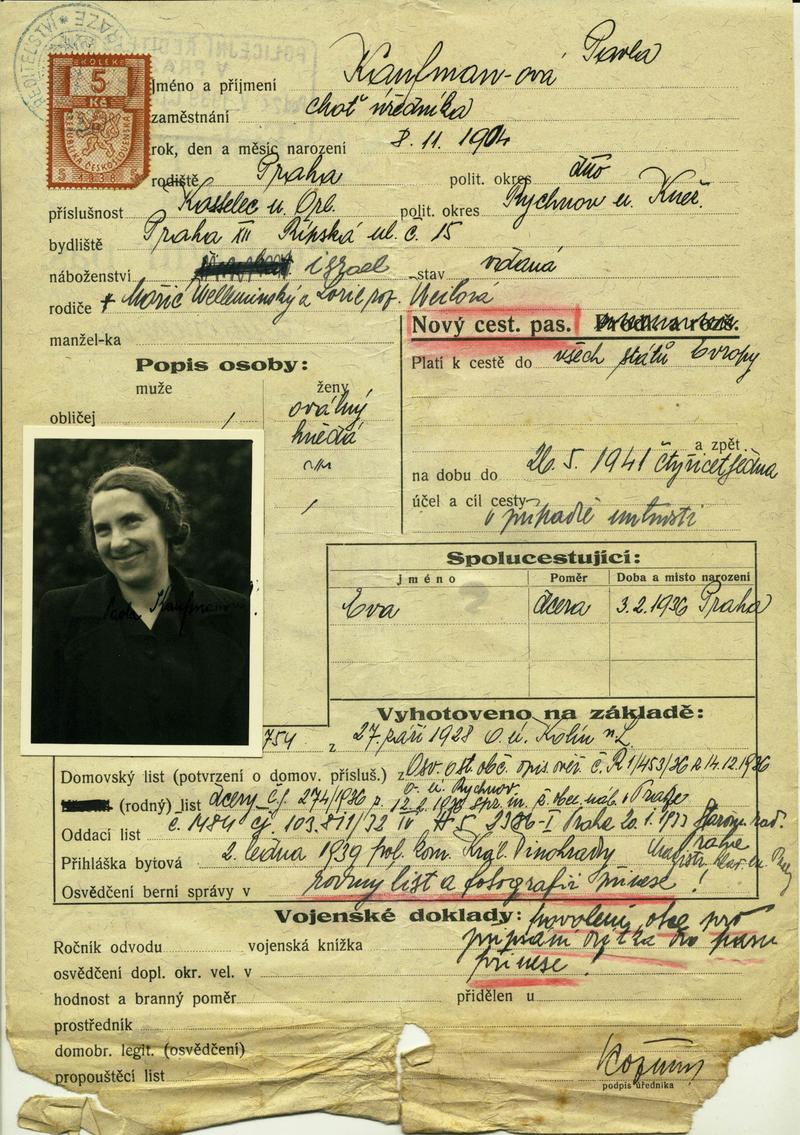 ŘEDITELSTVÍ * PRAZE
POLICEJNÍ ŘEDITEL
V PRA
KOLEK
5
Kč
REPUBLIKA ČESKOSLOVENSKÁ
5 1938 5
Jméno a příjmení Kaufman-ová Pavla
zaměstnání choť úředníka
rok, den a měsíc narození 8. 11. 1904
rodiště Praha polit. okres dtto
příslušnost Kostelec n. Orl. polit. okres Rychnov n. Kněž.
bydliště Praha XII Řipská ul. č. 15
náboženství israel stav vdaná
rodiče † Mořic Welleminský a Lorie roz. Weilová
manžel-ka
Nový cest. pas.
Platí k cestě do všech států Evropy
a zpět.
na dobu do 26. 5. 1941 čtyřicetjedna
účel a cíl cesty v případě nutnosti
Popis osoby:
muže ženy
obličej oválný
hnědá
Pavla Kaufmanová
Spolucestující:
jméno Poměr Doba a místo narození
Eva dcera 3. 2. 1936 Praha
Vyhotoveno na základě:
754 z 27. září 1928 o. ú. Kolín
Domovský list (potvrzení o domov. přísluš.) z Osv. ost. obč. opis ověř. č. R 1/453/36 z 14. 12. 1936
o. ú. Rychnov
(rodný) list dcery č. j. 274/1936 z. 12. 2. 1936 Praze
Oddací list č. 1484 čj. 103.811/32 IV 5 2386-I Praha 20. 1. 1933
Přihláška bytová 2. ledna 1939 pol. kom. Král. Vinohrady
Osvědčení berní správy v rodný list a fotografii přinese!
Vojenské doklady: povolení otce pro
Ročník odvodu vojenská knížka připsání dítka do pasu
osvědčení dopl. okr. vel. v přinese!
hodnost a branný poměr přidělen u
prostředník
domobr. legit. (osvědčení)
propouštěcí list
podpis úředníka